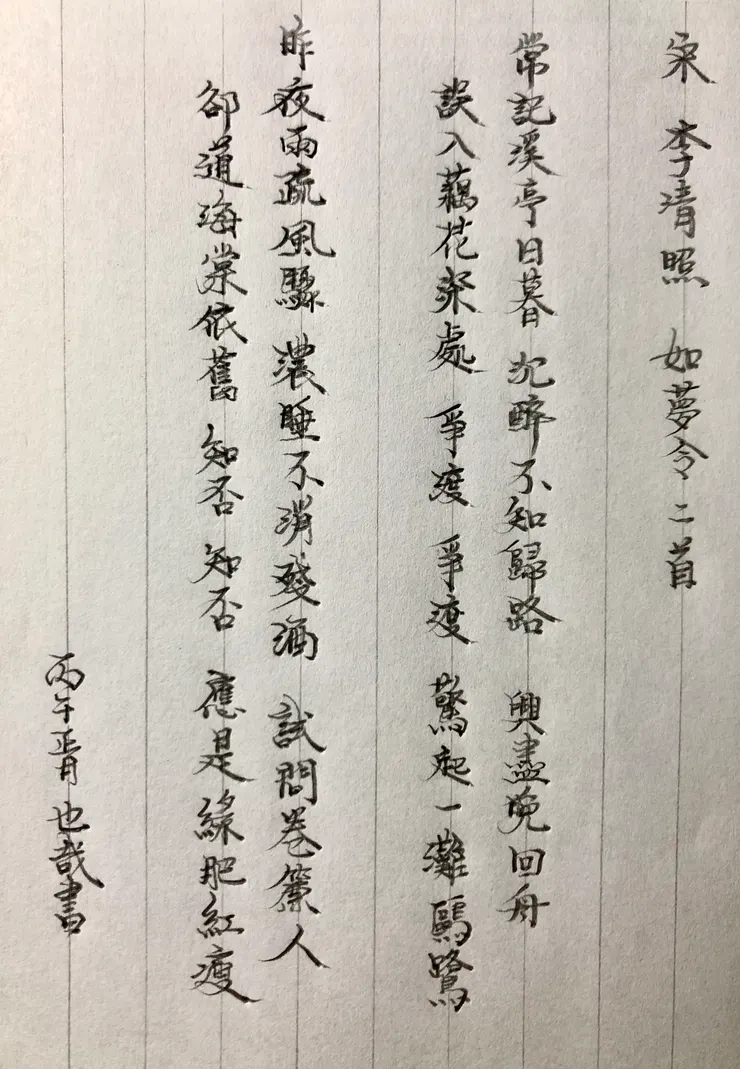 宋 李清照 如夢令二首
常記溪亭日暮 沉醉不知歸路 興盡晚回舟
誤入藕花深處 爭渡 爭渡 驚起一灘鷗鷺
昨夜雨疏風驟 濃睡不消殘酒 試問卷簾人
卻道海棠依舊 知否 知否 應是綠肥紅瘦
丙午正月 也哉書